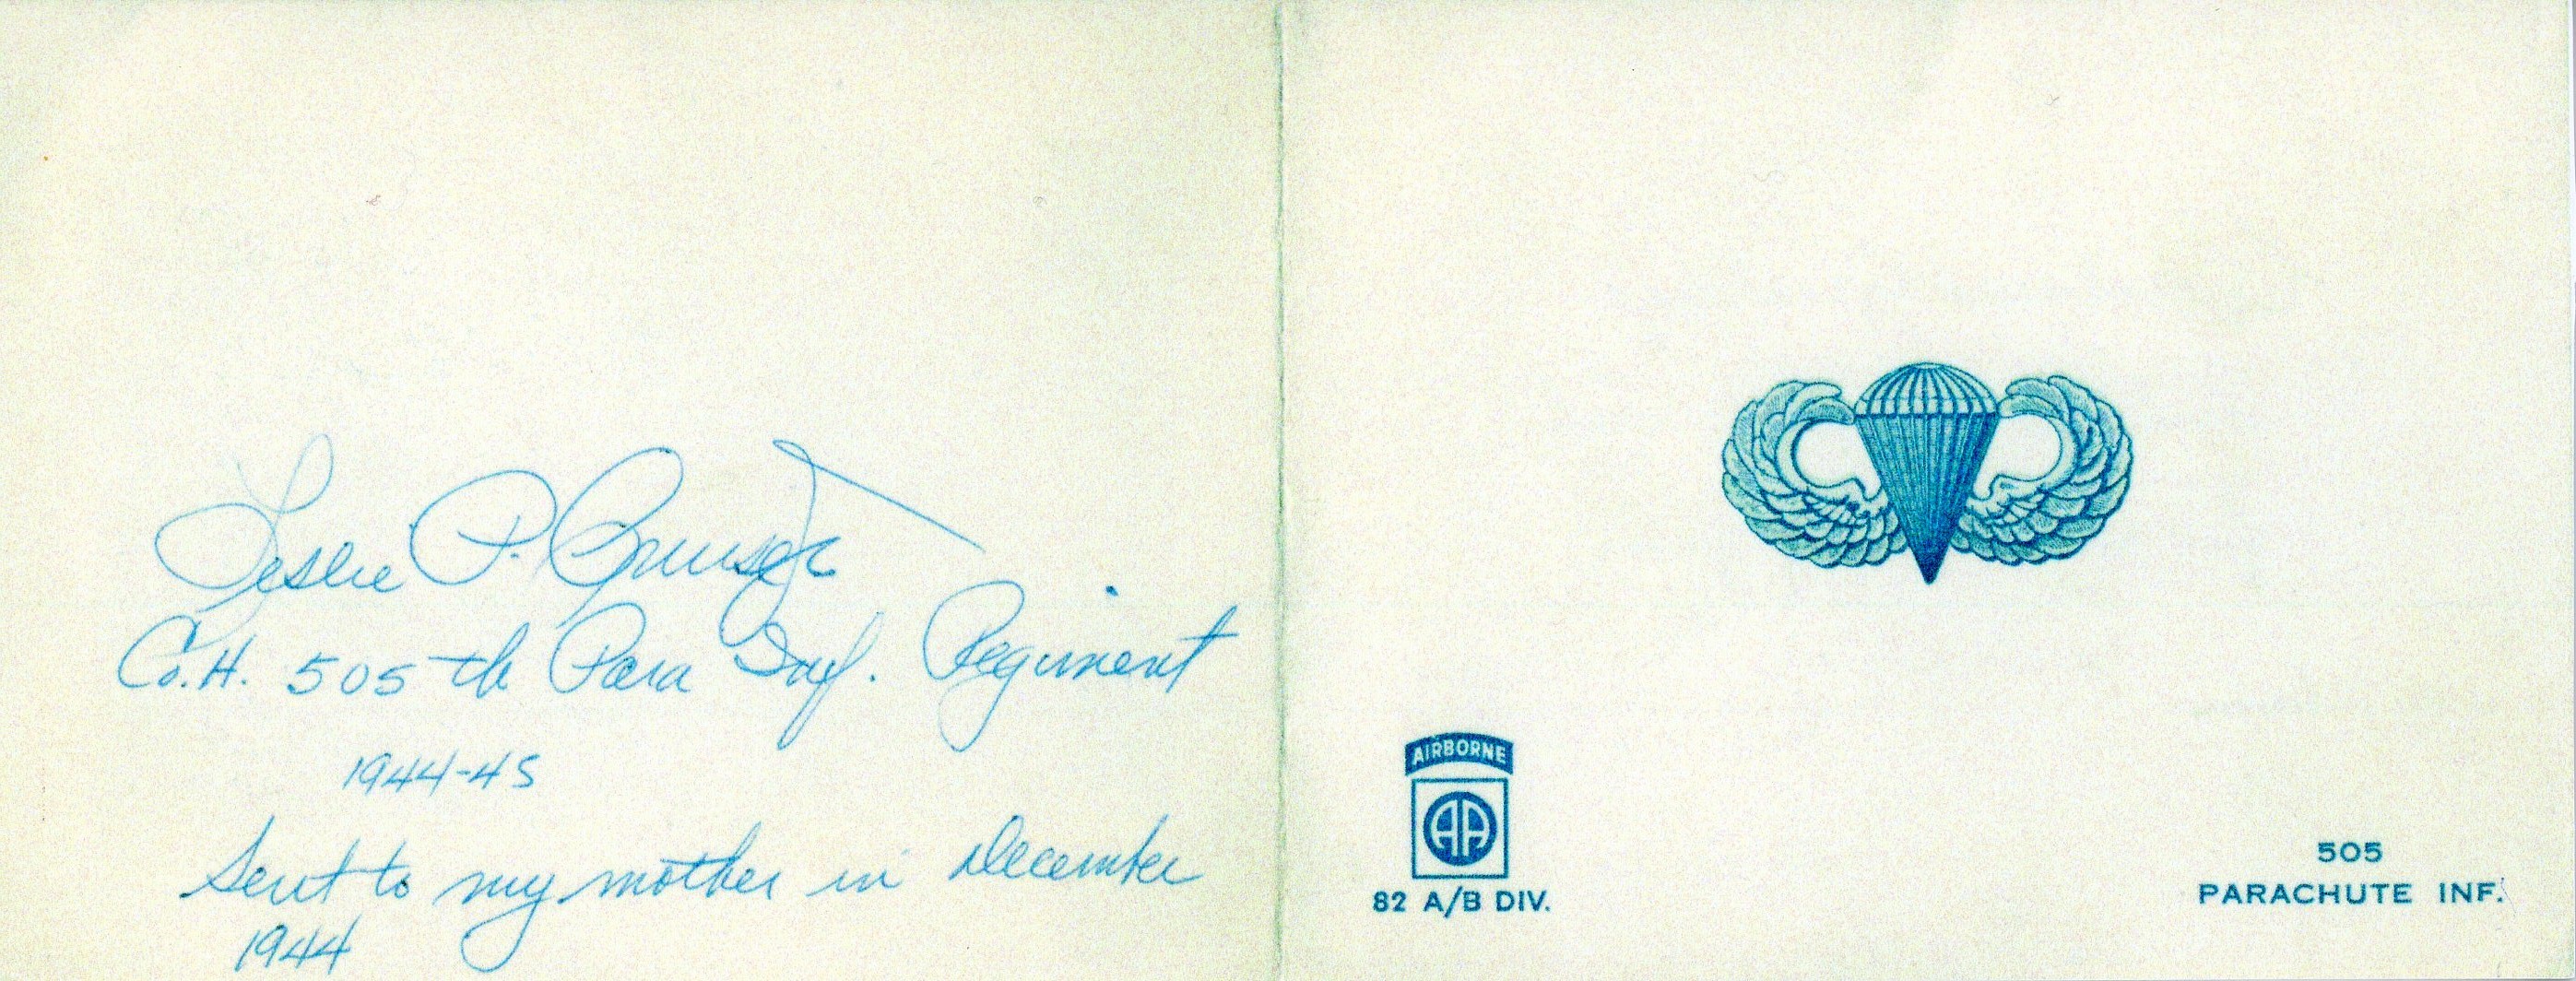 Leslie P. Cruise Jr
Co. H. 505th Para Inf. Regiment
1944-45
Sent to my mother in December
1944
AIRBORNE
AA
82 A/B DIV.
505
PARACHUTE INF.